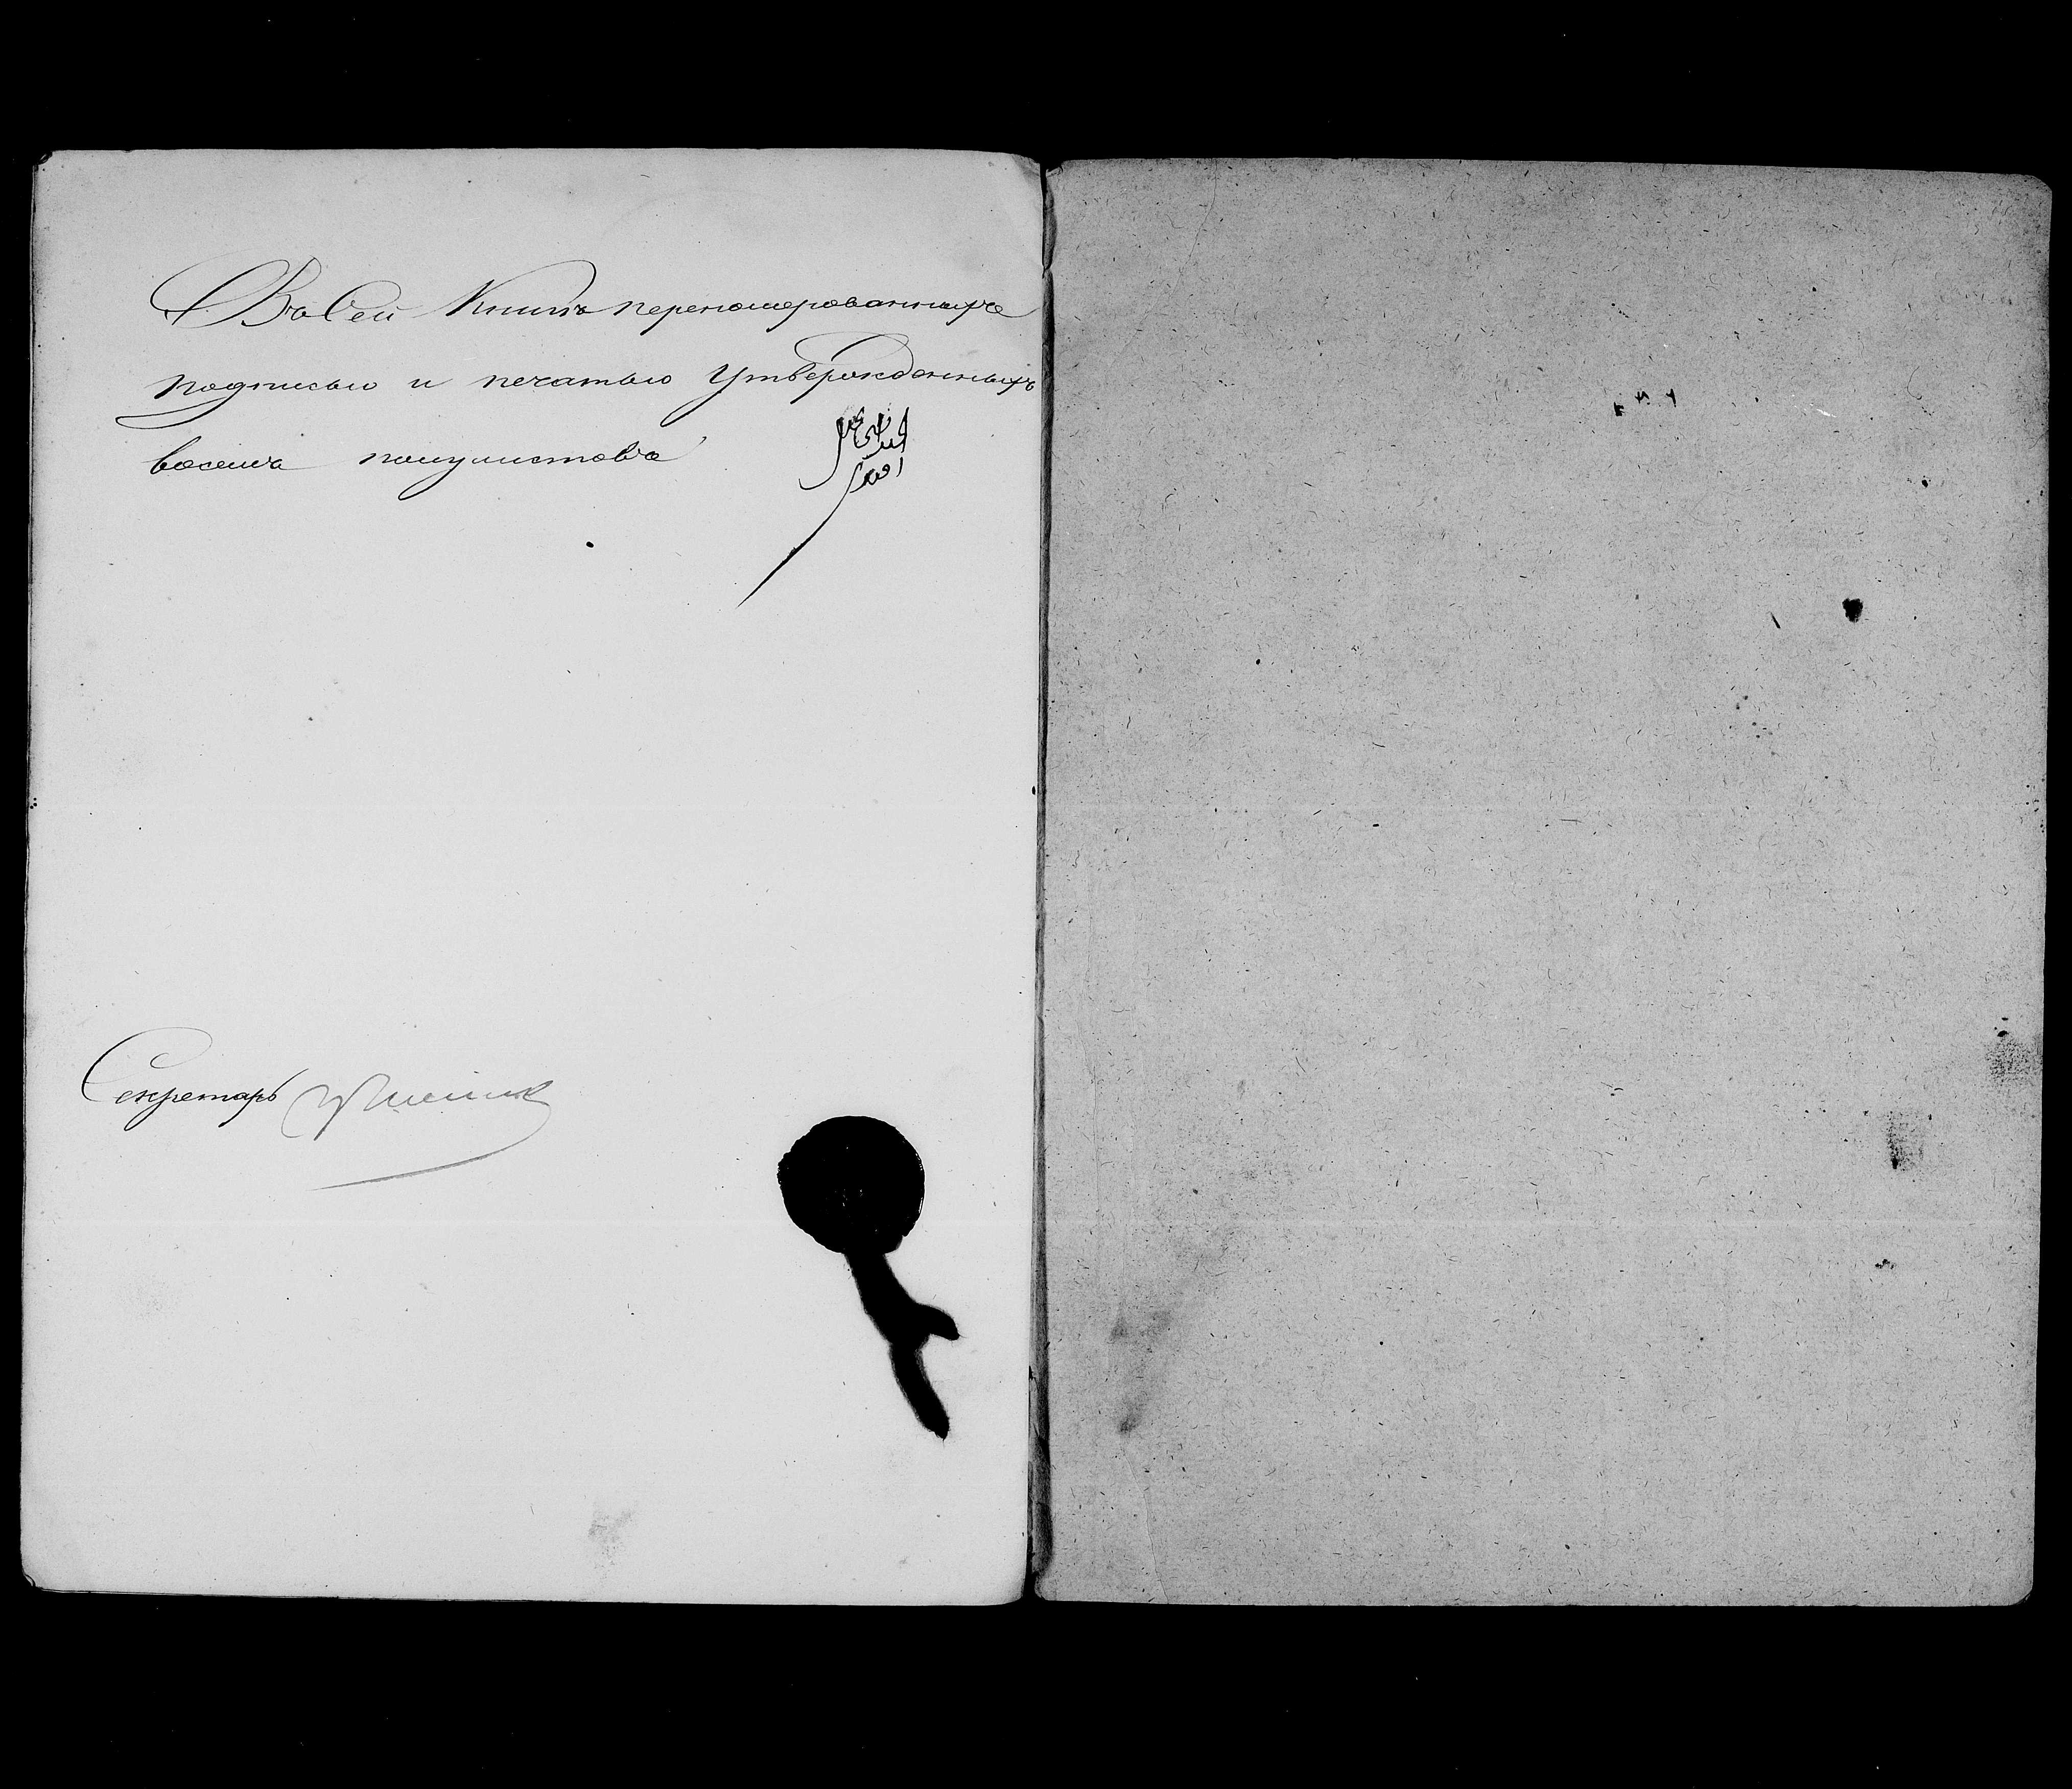 Въ Сей Книгѣ переномерованныхъ
подписью и печатью утвержденныхъ
восемь полулистовъ
Секретарь